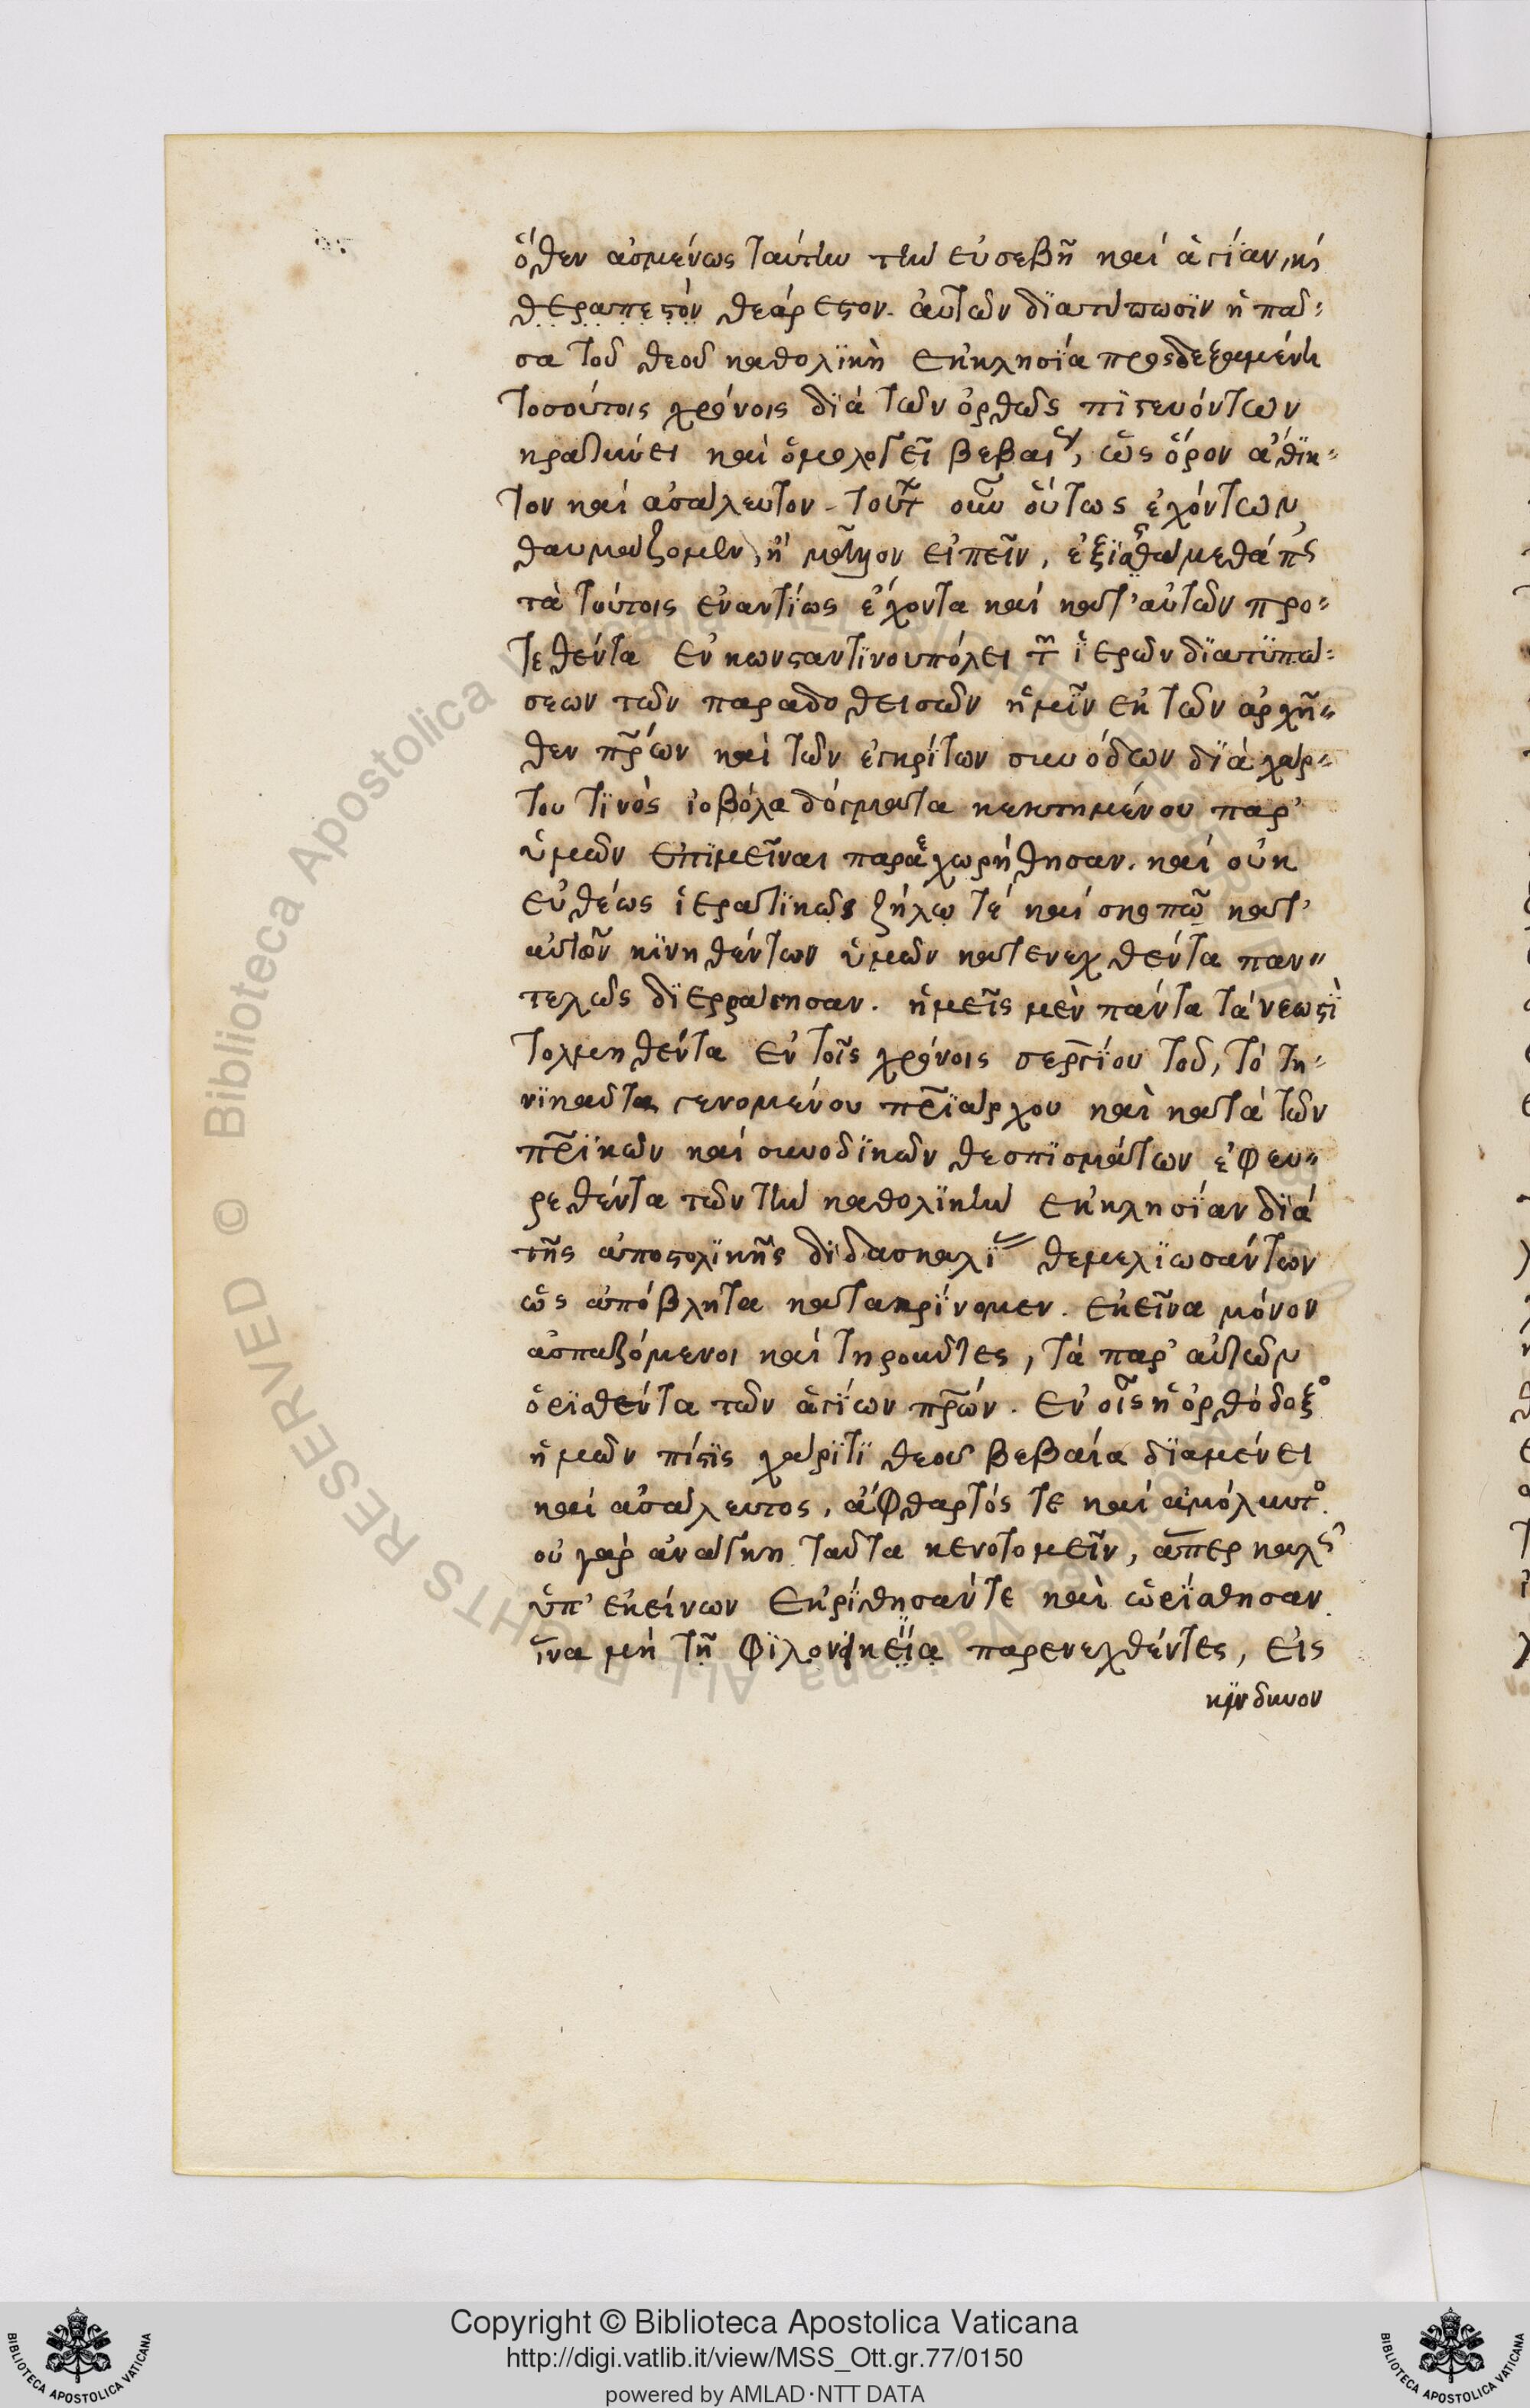 ὅθεν ἀσμένως ταύτην τὴν εὐσεβῆ καὶ ἁγίαν, κὶ
θεραπεςὸν θεάρεςον αὐτῶν διατύπωσϊν ἡ πᾶ-
σα τοῦ θεοῦ καθολϊκὴ ἐκκλησία προσδεξαμένη
τοσούτοις χρόνοις διὰ τῶν ὀρθῶς πϊςευόντων
κρατύνει καὶ ὁμολογεῖ βεβαι, ὡς ὅρον ἄθϊκ-
τον καὶ ἀσάλευτον. τούτ οὖν οὕτως ἐχόντων
θαυμάζομεν, ἢ μᾶλλον εἰπεῖν, ἐξϊςάμεθα πς
τὰ τούτοις ἐναντίως ἔχοντα καὶ κατ' αὐτῶν προ-
τεθέντα ἐν κωνςαντϊνουπόλει τ ἱερῶν διατϋπώ-
σεων τῶν παραδοθεισῶν ἡμῖν ἐκ τῶν ἀρχῆ-
θεν πρ̅ων καὶ τῶν ἐγκρίτων συνόδων διὰ χάρ-
του τϊνὸς ἰοβόλα δόγματα κεκτημένου παρ'
ὑμῶν ἐπϊμεῖναι παρεχωρήθησαν. καὶ οὐκ
εὐθέως ἱερατϊκῶς ζήλω τὲ καὶ σκοπῶ κατ'
αὐτῶν κϊνηθέντων ὑμῶν κατενεχθέντα παν-
τελῶς διερράγησαν. ἡμεῖς μὲν πάντα τὰ νεωςὶ
τολμηθέντα ἐν τοῖς χρόνοις σεργίου τοῦ, τὸ τη-
νϊκαῦτα γενομένου πρ̅ϊάρχου καὶ κατὰ τῶν
πρ̅ϊκῶν καὶ συνοδϊκῶν θεσπϊσμάτων ἐφευ-
ρεθέντα τῶν τὴν καθολϊκὴν ἐκκλησίαν διὰ
τῆς ἀποςολϊκῆς διδασκαλϊ θεμελϊωσάντων
ὡς ἀπόβλητα κατακρίνομεν. ἐκεῖνα μόνον
ἀσπαζόμενοι καὶ τηροῦντες, τὰ παρ' αὐτῶν
ὁρϊσθέντα τῶν ἁγίων πρ̅ων. ἐν οἷς ἡ ὀρθόδοξο
ἡμῶν πίςϊς χάρϊτϊ θεοῦ βεβαία διαμένει
καὶ ἀσάλευτος, ἄφθαρτός τε καὶ ἀμόλυντο.
οὐ γὰρ ἀνάγκη ταῦτα κενοτομεῖν, ἅπερ καλς
ὑπ' ἐκείνων ἐκρίθησάν τε καὶ ὡρϊσθησαν
ἵνα μὴ τῆ φϊλονϊκεία παρενεχθέντες, εἰς
κίνδυνον
Copyright © Biblioteca Apostolica Vaticana
http://digi.vatlib.it/view/MSS_Ott.gr.77/0150
powered by AMLAD·NTT DATA